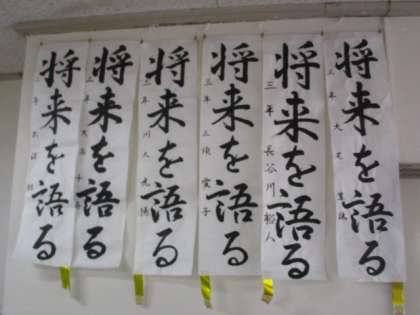 将来を語る
三年
将来を語る
三年 大
将来を語る
三年 長谷川
将来を語る
三年
将来を語る
三年 川
将来を語る
三年